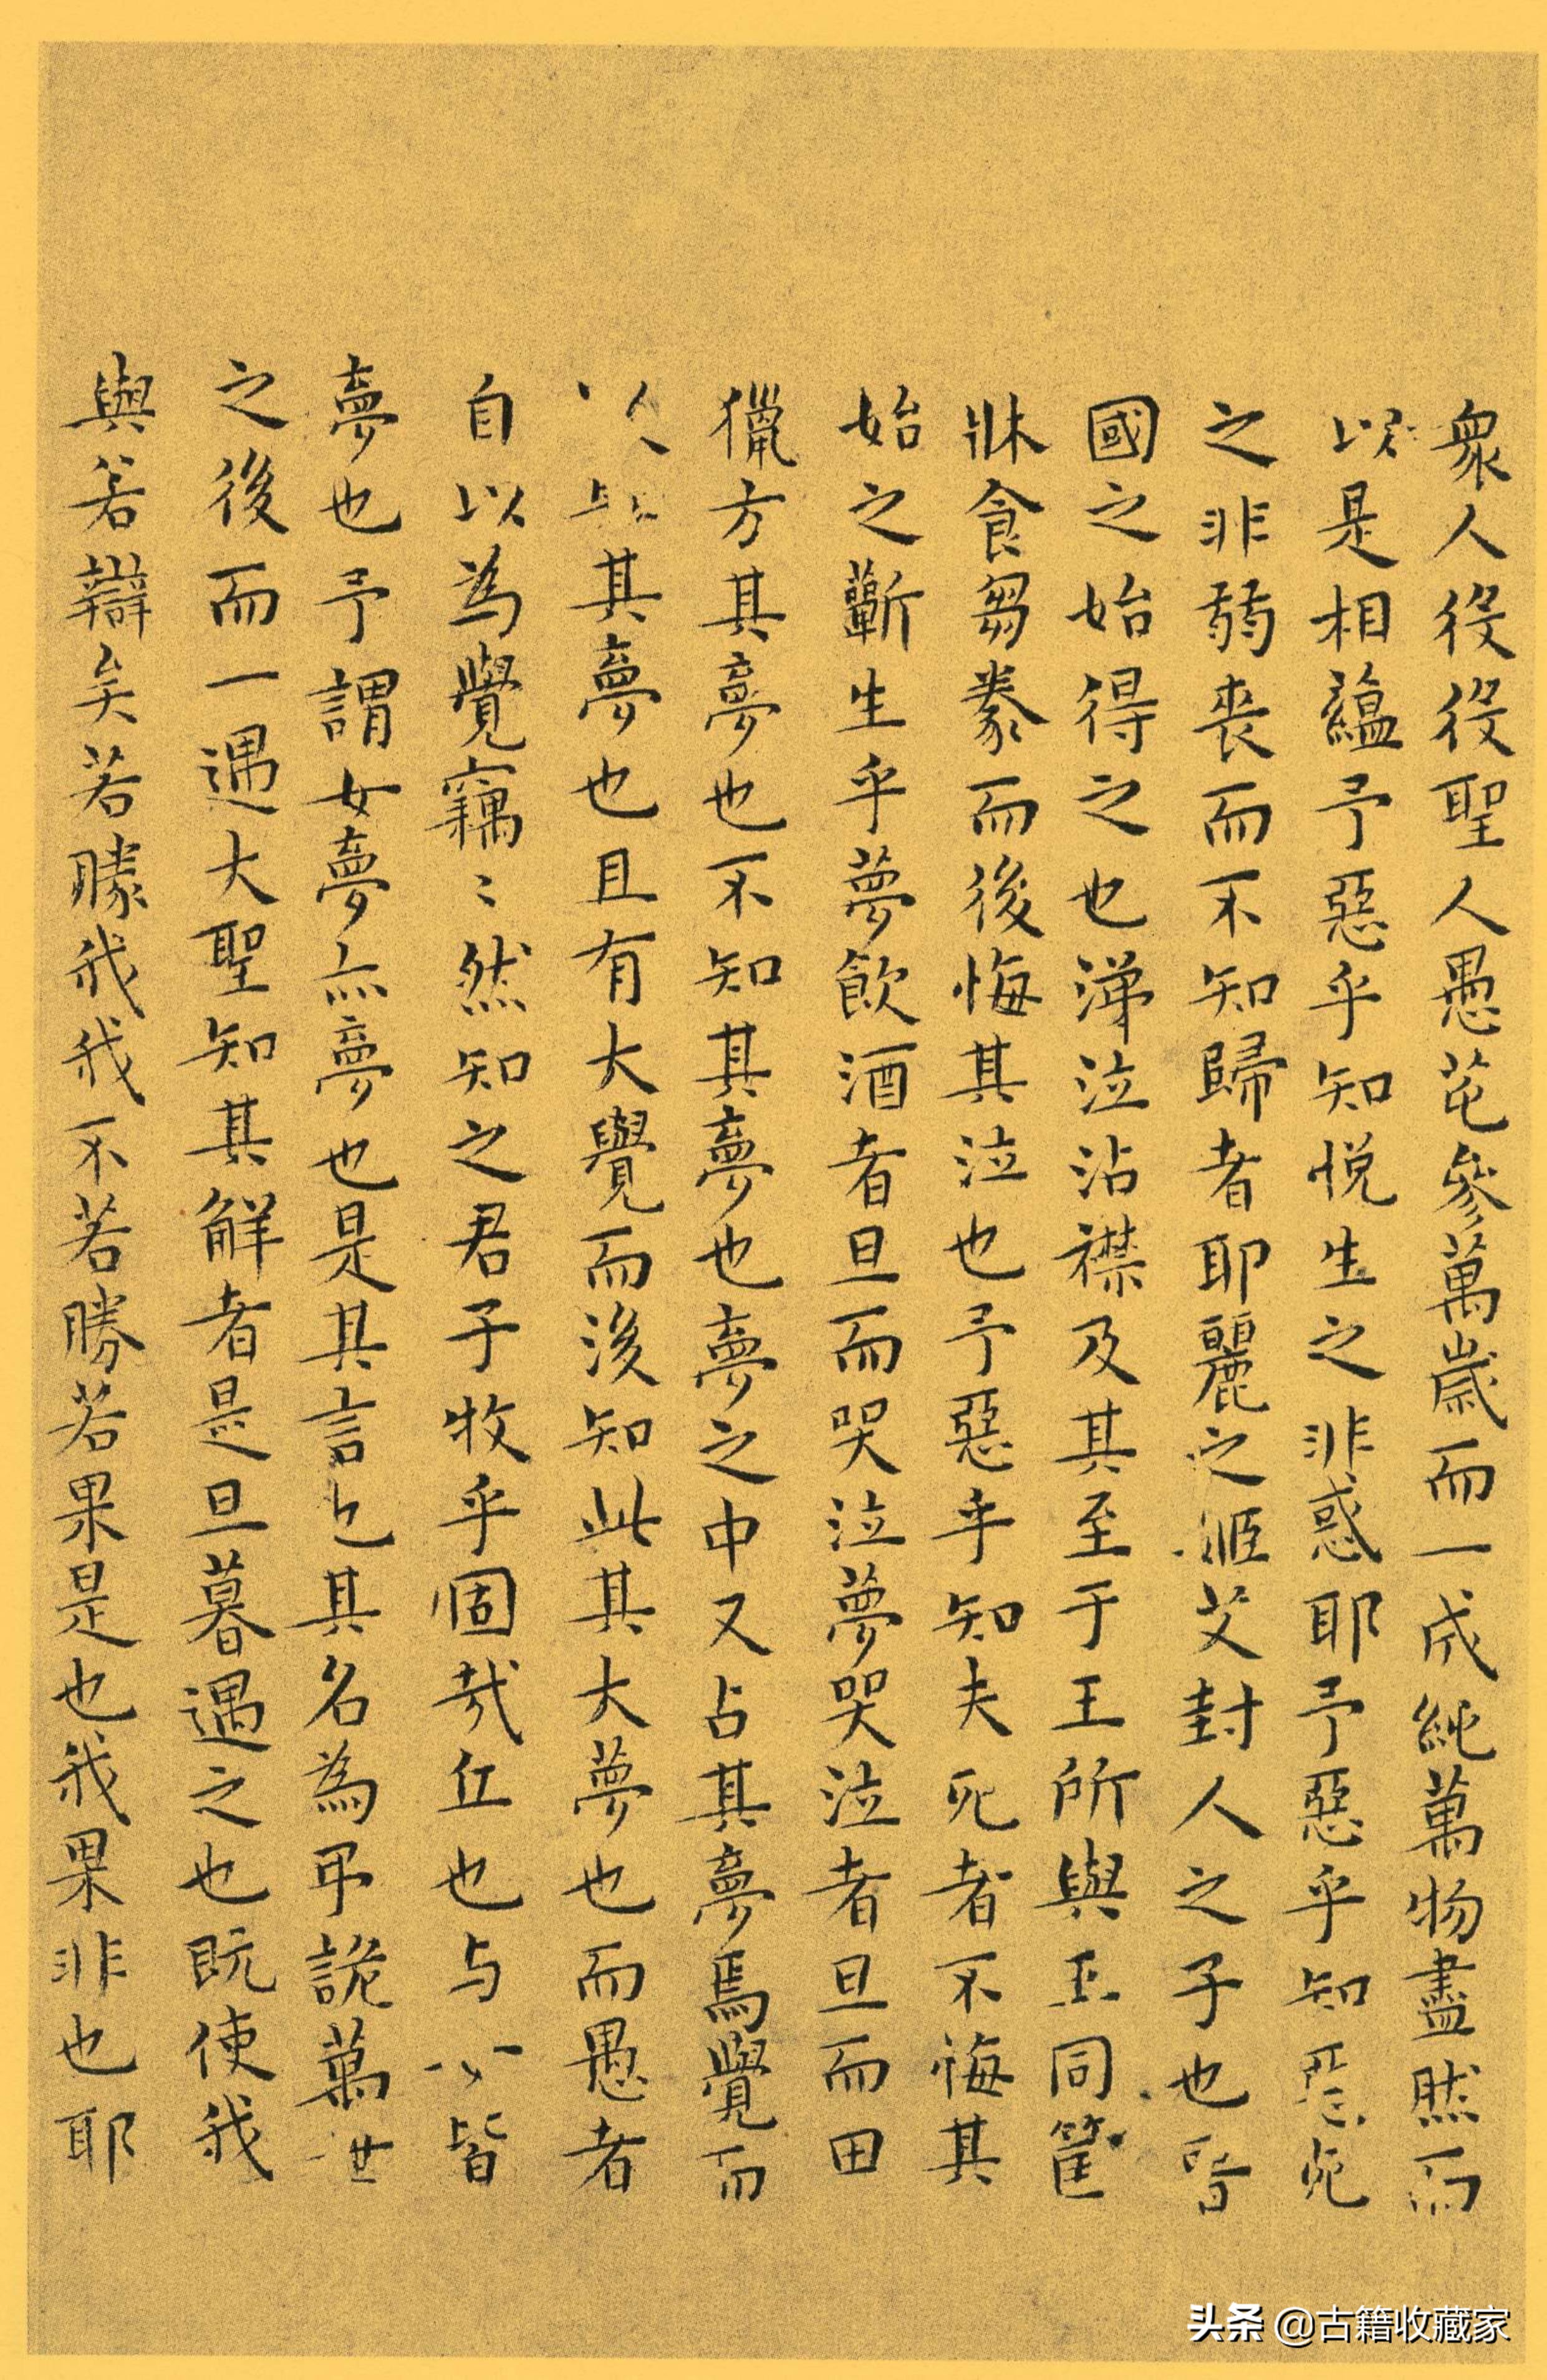 衆人役役聖人愚芚參萬歲而一成純萬物盡然而
以是相藴予惡乎知悅生之非惑耶予惡乎知惡死
之非弱喪而不知歸者耶麗之姬艾封人之子也晉
國之始得之也涕泣沾襟及其至于王所與王同筐
牀食芻豢而後悔其泣也予惡乎知夫死者不悔其
始之蘄生乎夢飲酒者旦而哭泣夢哭泣者旦而田
獵方其夢也不知其夢也夢之中又占其夢焉覺而
以其夢也且有大覺而後知此其大夢也而愚者
自以為覺竊〻然知之君子牧乎固哉丘也与皆
夢也予謂女夢亦夢也是其言也其名為弔詭萬世
之後而一遇大聖知其解者是旦暮遇之也既使我
與若辯矣若勝我我不若勝若果是也我果非也耶
头条 @古籍收藏家